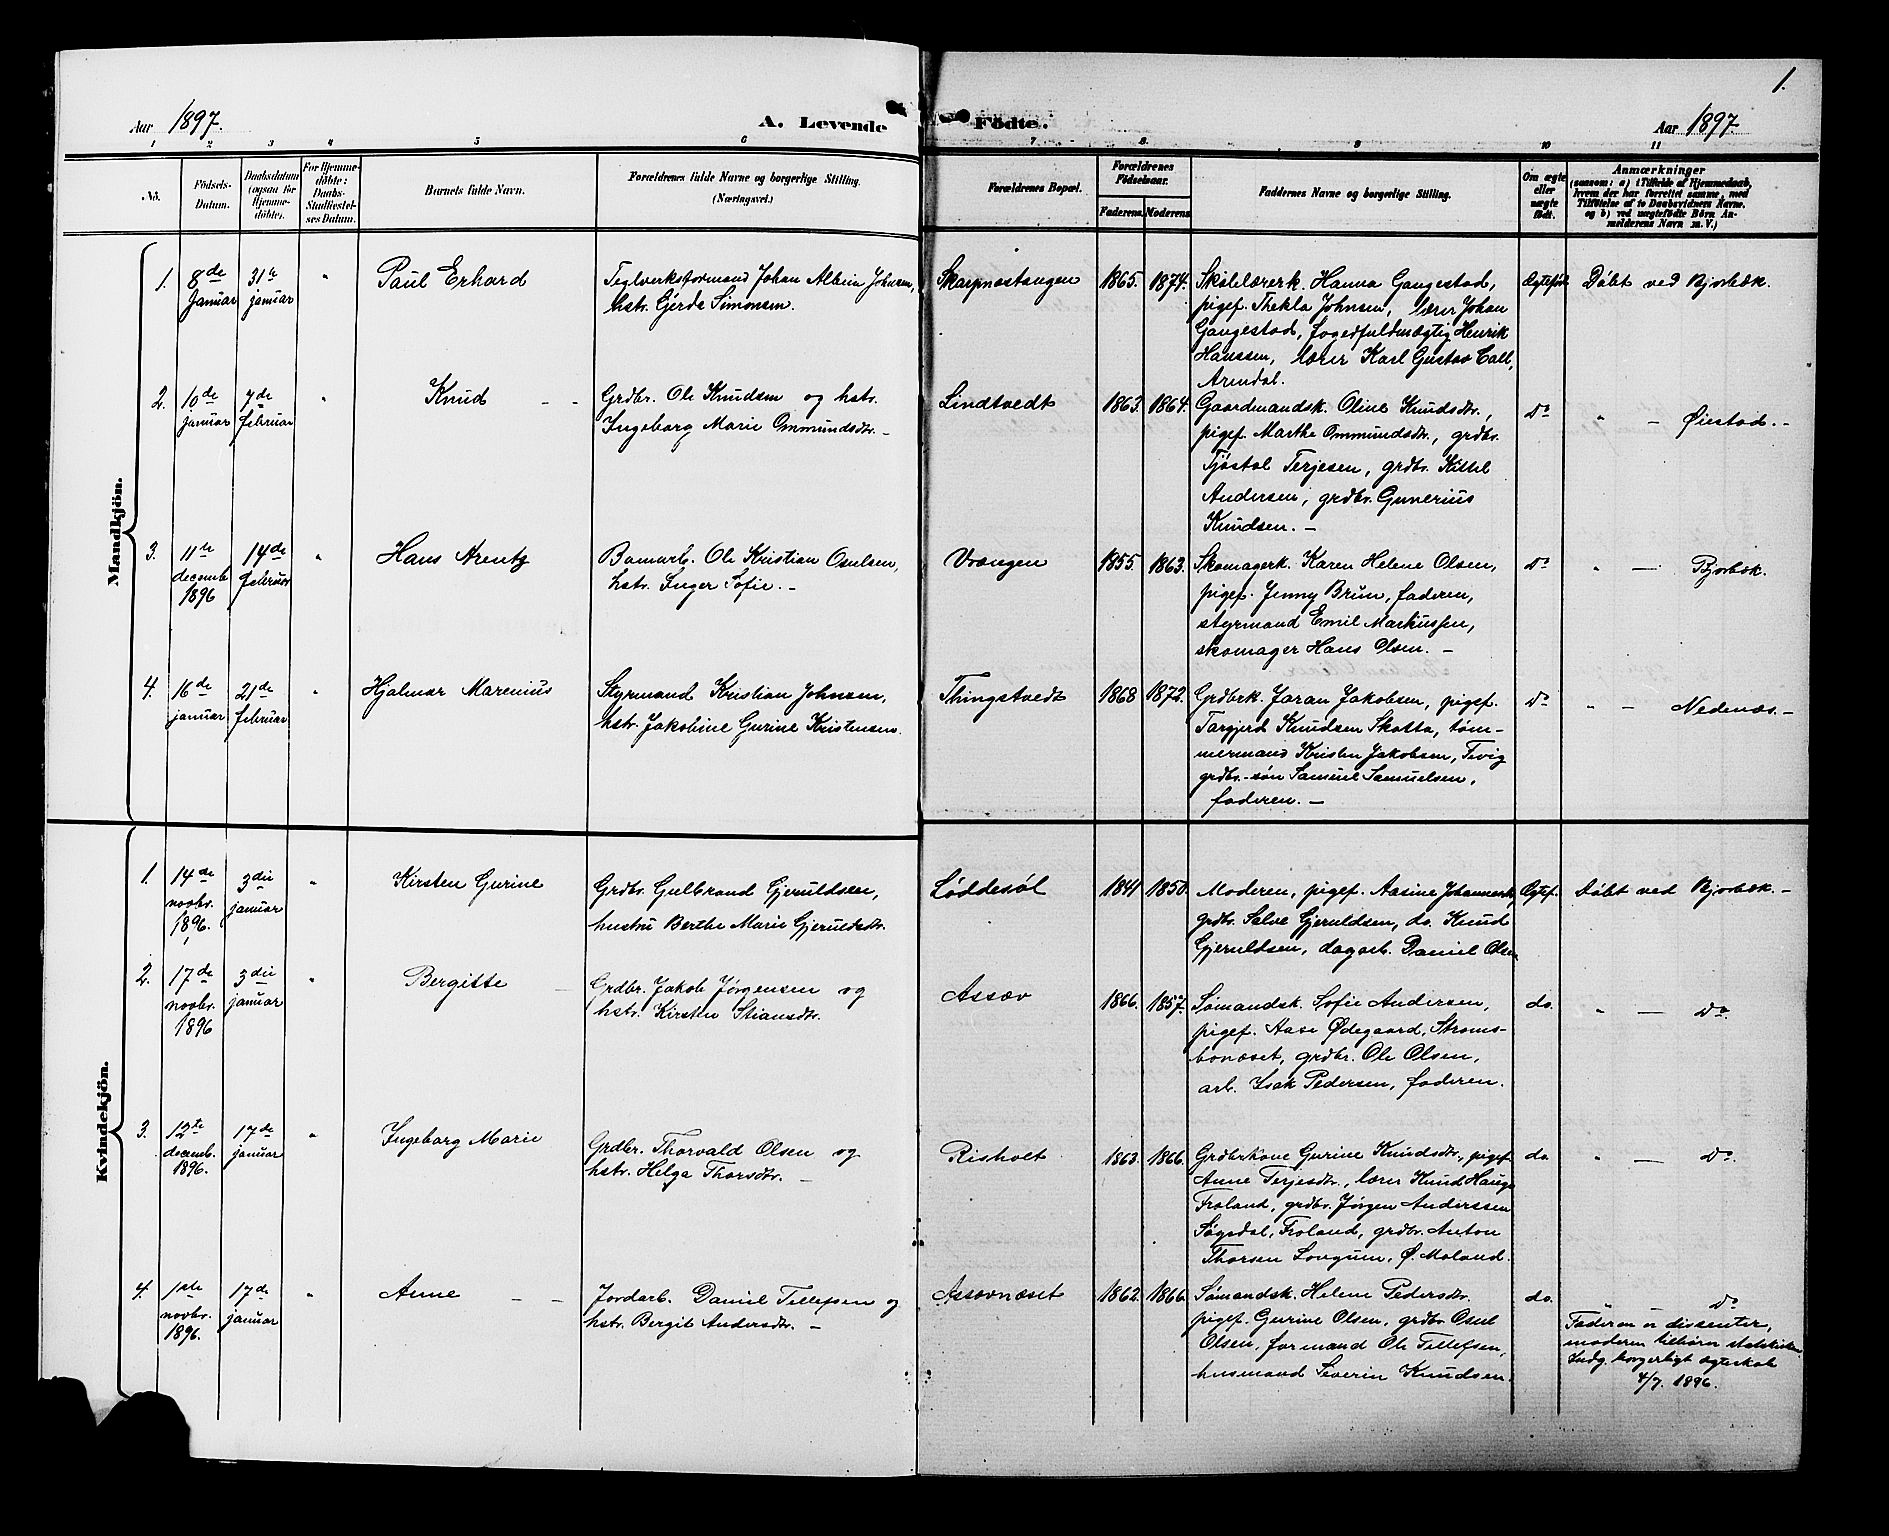 1.
Aar 1897.
A. Levende
Födte.
Aar 1897.
1 2 3 4 5 6 7 8 9 10 11
No.
Födsels-
Datum.
Daabsdatum
(ogsaa for
Hjemme-
döbte).
For Hjemme-
döbte:
Daabs-
Stadfæstel-
ses Datum.
Barnets fulde Navn.
Forældrenes fulde Navne og borgerlige Stilling.
(Næringsvei.)
Forældrenes Bopæl.
Forældrenes
Födselsaar.
Faderens.
Moderens.
Faddernes Navne og borgerlige Stilling.
Om ægte
eller
uægte
födt.
Anmærkninger
(saasom: a) i Tilfælde af Hjemmedaab,
hvem der har forrettet samme, med
Tilföielse af to Daabsvidners Navne,
og b) ved uægtefödte Börn An-
melderens Navn m. V.)
Mandkjön.
1.
8de
Januar
31te
januar
"
Paul Erhard
Teglverksformand Johan Albin Johnsen,
hstr. Gjerda Simonsen.
Skarpnestangen
1865.
1874.
Skolelærerk. Hanna Gangestad,
pigef. Thekla Johnsen, lærer Johan
Gangestad, fogedfuldmægtig Henrik
Hanssen, lærer Karl Gustav
Arendal.
Ægtefød
Døbt ved Bjorbæk.
2.
10de
januar
7de
februar
"
Knud
Grdbr. Ole Knudsen og hstr.
Ingeborg Marie Ommundsdtr. –
Lindtvedt
1863.
1864.
Gaardmandsk. Oline Knudsdtr.,
pigef. Marthe Ommundsdtr., grdbr.
Tjøstal Terjesen, grdbr. Kittel
Andersen, grdbr. Gunerius
Knudsen. –
Do
" – Øiestad. –
3.
11te
decemb.
1896
14de
februar
"
Hans Arentz
Banearb. Ole Kristian Osulsen,
hstr. Inger Sofie. –
Vrængen
1855.
1863.
Skomagerk. Karen Helene Olsen,
pigef. Jenny Brun, faderen,
styrmand Emil Markussen,
skomager Hans Olsen. –
Do
" – Bjorbæk.
4.
16de
januar
21de
februar
"
Hjalmar Marenius
Styrmand Kristian Johnsen,
hstr. Jakobine Gurine Kristensen.
Thingstvedt
1868
1872.
Grdbrk. Jaran Jakobsen, pigef.
Targjerd Knudsen Skotta, tøm-
mermand Kristen Jakobsen, Fevig
grdbr.-søn Samuel Samuelsen,
faderen. –
Do
" – Nedenæs. –
Kvindekjön.
1.
14de
novbr.
1896.
3die
januar
"
Kirsten Gurine
Grdbr. Gulbrand Gjeruldsen,
hustru Berthe Marie Gjeruldsdtr.
Løddesøl
1841
1850.
Moderen, pigef. Aasine Johannesd.,
grdbr. Salve Gjeruldsen, do. Knud
Gjeruldsen, dagarb. Daniel Olsen
Ægtef.
Døbt ved Bjorbæk. –
2.
17de
novbr.
1896
3die
januar
"
Bergitte
Grdbr. Jakob Jørgensen og
hstr. Kirsten Stiansdtr.
Assæv
1866.
1857.
Sømandsk. Sofie Andersen,
pigef. Aase Ødegaard, Stroms-
bonæset, grdbr. Ole Olsen,
arb. Isak Pedersen, faderen.
do.
" – Do.
3.
12te
decemb.
1896.
17de
januar
"
Ingeborg Marie
Grdbr. Thorvald Olsen og
hstr. Helga Thorsdtr. –
Risholt
1863.
1866.
Grdbrkone Gurine Knudsdtr., pigef.
Anne Terjesdtr., lærer Knud Hauge
Froland, grdbr. Jørgen Anderssen
Søgedal, Froland, grdbr. Anton
Thorsen Longum, Ø. Moland.
do.
" – Do.
4.
1ste
novbr.
1896.
17de
januar
"
Anne
Jordarb. Daniel Tellefsen og
hstr. Bergit Andersdtr. –
Assævnæset
1862.
1866.
Sømandsk. Helene Pedersdtr.
pigef. Gurine Olsen, grdbr. Osul
Olsen, formand Ole Tellefsen,
husmand Severin Knudsen.
do.
Do
Faderen er dissenter,
moderen tilhører statskirken.
Indg. borgerligt ægteskab
4/7. 1896.